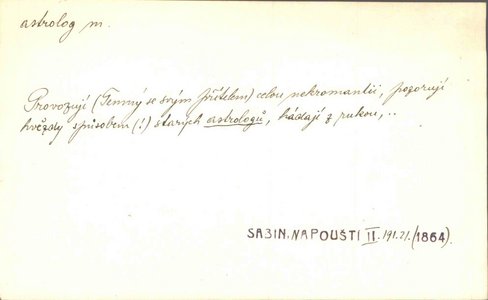 astrolog m.
Provozují (Temný se svým přítelem) celou nekromantii, pozorují
hvězdy spůsobem (!) starých astrologů, hádají z rukou,..
SABIN. NAPOUŠTI II. 191.21. (1864).